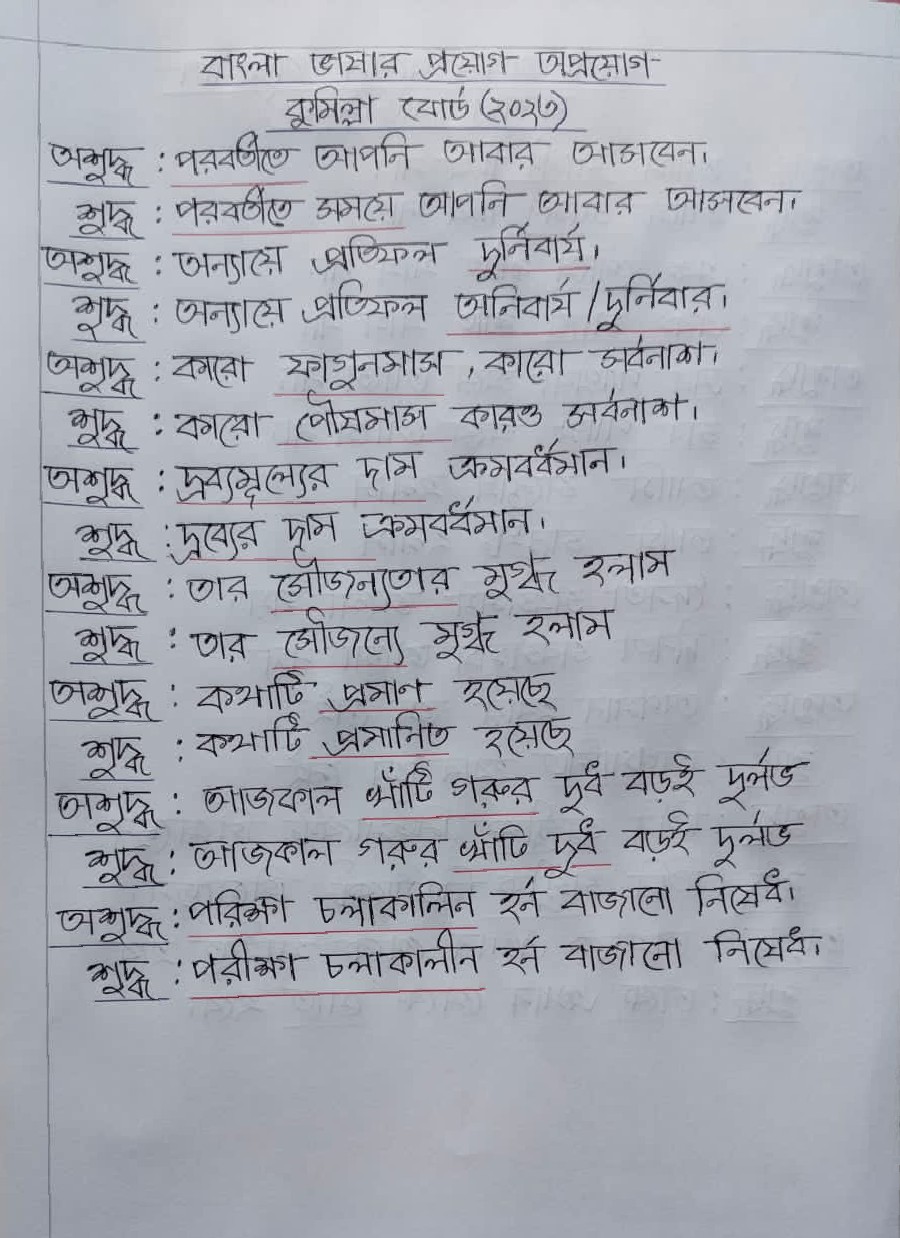 বাংলা ভাষার প্রয়োগ অপ্রয়োগ
কুমিল্লা বোর্ড (২০২৩)
অশুদ্ধ : পরবর্তীতে আপনি আবার আসবেন।
শুদ্ধ : পরবর্তীতে সময়ে আপনি আবার আসবেন।
অশুদ্ধ : অন্যায়ে প্রতিফল দুর্নিবার্য।
শুদ্ধ : অন্যায়ে প্রতিফল অনিবার্য/দুর্নিবার।
অশুদ্ধ : কারো ফাগুনমাস, কারো সর্বনাশ।
শুদ্ধ : কারো পৌষমাস কারও সর্বনাশ।
অশুদ্ধ : দ্রব্যমূল্যের দাম ক্রমবর্ধমান।
শুদ্ধ : দ্রব্যের দাম ক্রমবর্ধমান।
অশুদ্ধ : তার সৌজন্যতার মুগ্ধ হলাম
শুদ্ধ : তার সৌজন্যে মুগ্ধ হলাম
অশুদ্ধ : কথাটি প্রমান হয়েছে
শুদ্ধ : কথাটি প্রমানিত হয়েছে
অশুদ্ধ : আজকাল খাঁটি গরুর দুধ বড়ই দুর্লভ
শুদ্ধ : আজকাল গরুর খাঁটি দুধ বড়ই দুর্লভ
অশুদ্ধ : পরিক্ষা চলাকালিন হর্ন বাজানো নিষেধ।
শুদ্ধ : পরীক্ষা চলাকালীন হর্ন বাজানো নিষেধ।